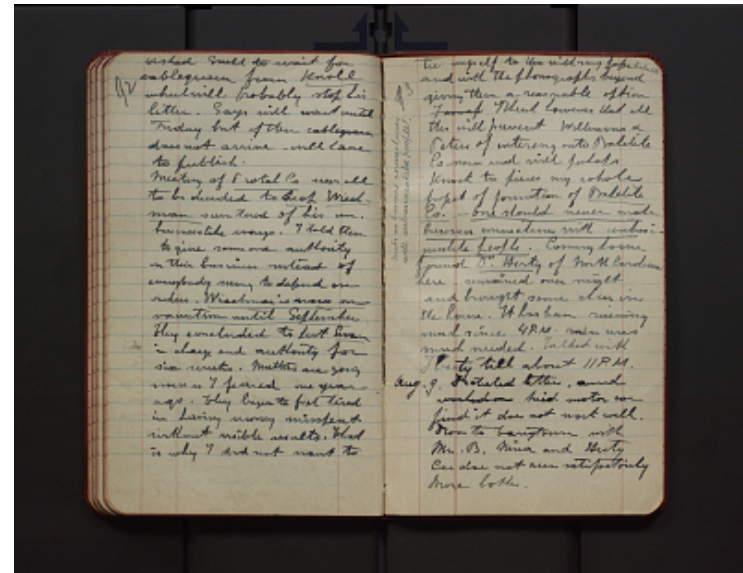 92
asked Snell to wait for
cablegram from Knoll
which will probably stop his
letter. Says will wait until
Friday but if then cablegram
does not arrive will have
to publish.
Meeting of Co
to be decided to stop Wiech-
man tired of his un-
businesslike ways. I told them
to give someone authority
in their business instead of
everybody having to depend on
orders. Wiechman is now on
vacation until September
They concluded to put
in charge and authority for
six weeks. Matters are going
now as I feared one year
ago. They begin to feel tired
in having money misspent
without visible results. That
is why I did not want to
tie myself to them with my
and with the phonographs beyond
giving them a reasonable option
I think however that all
this will prevent Williamson &
Peters of entering into Bakelite
Co. now and will perhaps
knock to pieces my whole
project of formation of Bakelite
Co. One should never make
business connection with
people. Coming home
found Dr. Herty of North Carolina
here remained over night
and brought some in
the house. It has been raining
since 4 P.M. rain was
much needed. Talked with
Herty till about 11 P.M.
Aug. 9. Dictated letters, and
tried motor car
find it does not work well.
Down to Tarrytown with
Mr. B. Nina and Herty
Car does not run satisfactorily
more bother.